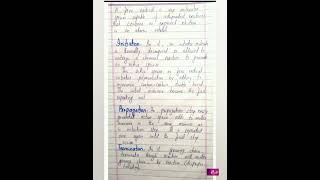 A free radical is any molecular
species capable of independent existence
that contains an unpaired electron
in an atomic orbital
Initiation: In it, an initiator molecule
is thermally decomposed or allowed to
undergo a chemical reaction to generate
active species
The active species or free radical
initiates polymerization by adding to
monomer carbon-carbon double bond
The initial monomer becomes the first
repeating unit
Propagation: In propagation step newly
generated active species adds to another
monomer in the same manner as
in initiation step. It is repeated
over again until the final step
Termination: In it growing chain
terminates through reaction with another
growing chain by reaction